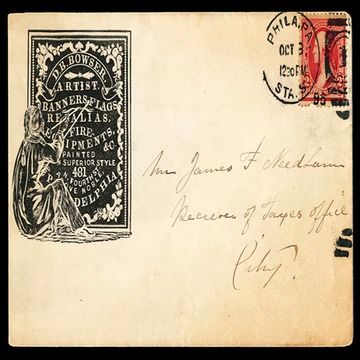 D.B. BOWSER,
ARTIST.
BANNERS, FLAGS,
REGALIAS,
FIRE
EQUIPMENTS, &C.
PAINTED
IN SUPERIOR STYLE
481
N. FOURTH ST.
ABOVE NOBLE
PHILADELPHIA
PHILA. PA.
OCT 3
1230 PM
STA. S
Mr James F Needham
Receiver of Taxes office
City.